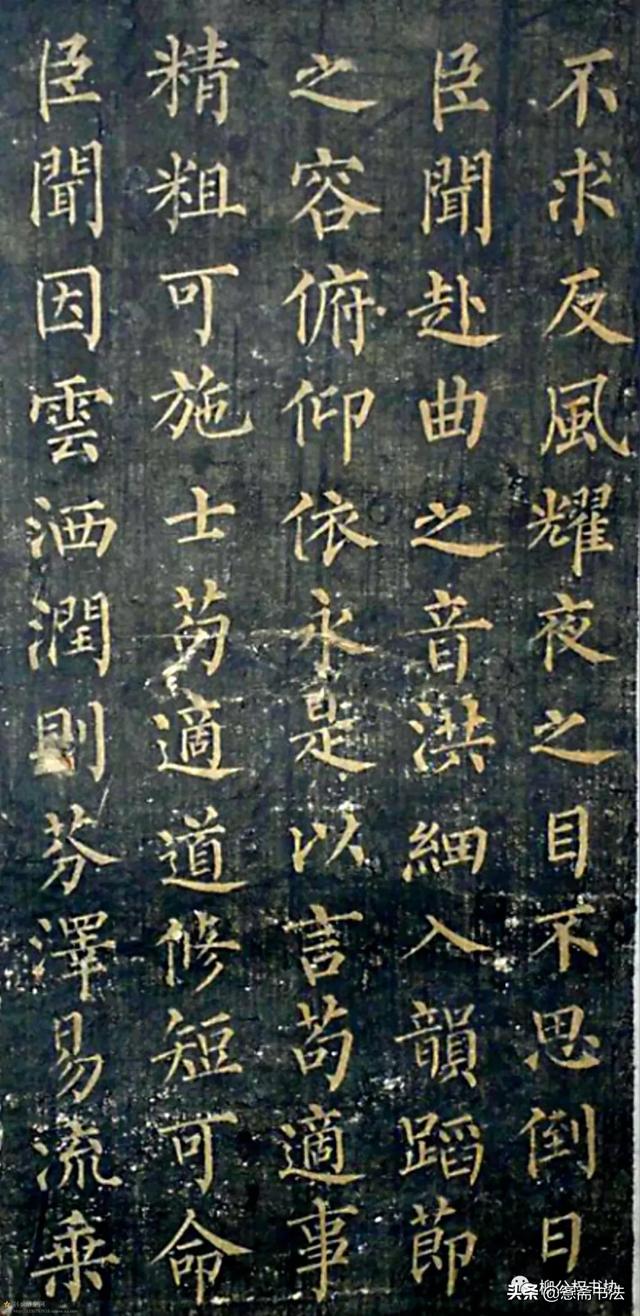 不求反風耀夜之目不思倒日
臣聞赴曲之音洪細入韻蹈節
之容俯仰依永是以言苟適事
精粗可施士苟適道修短可命
臣聞因雲洒潤則芬澤易流乗
柳公权书协
头条@總斋书法